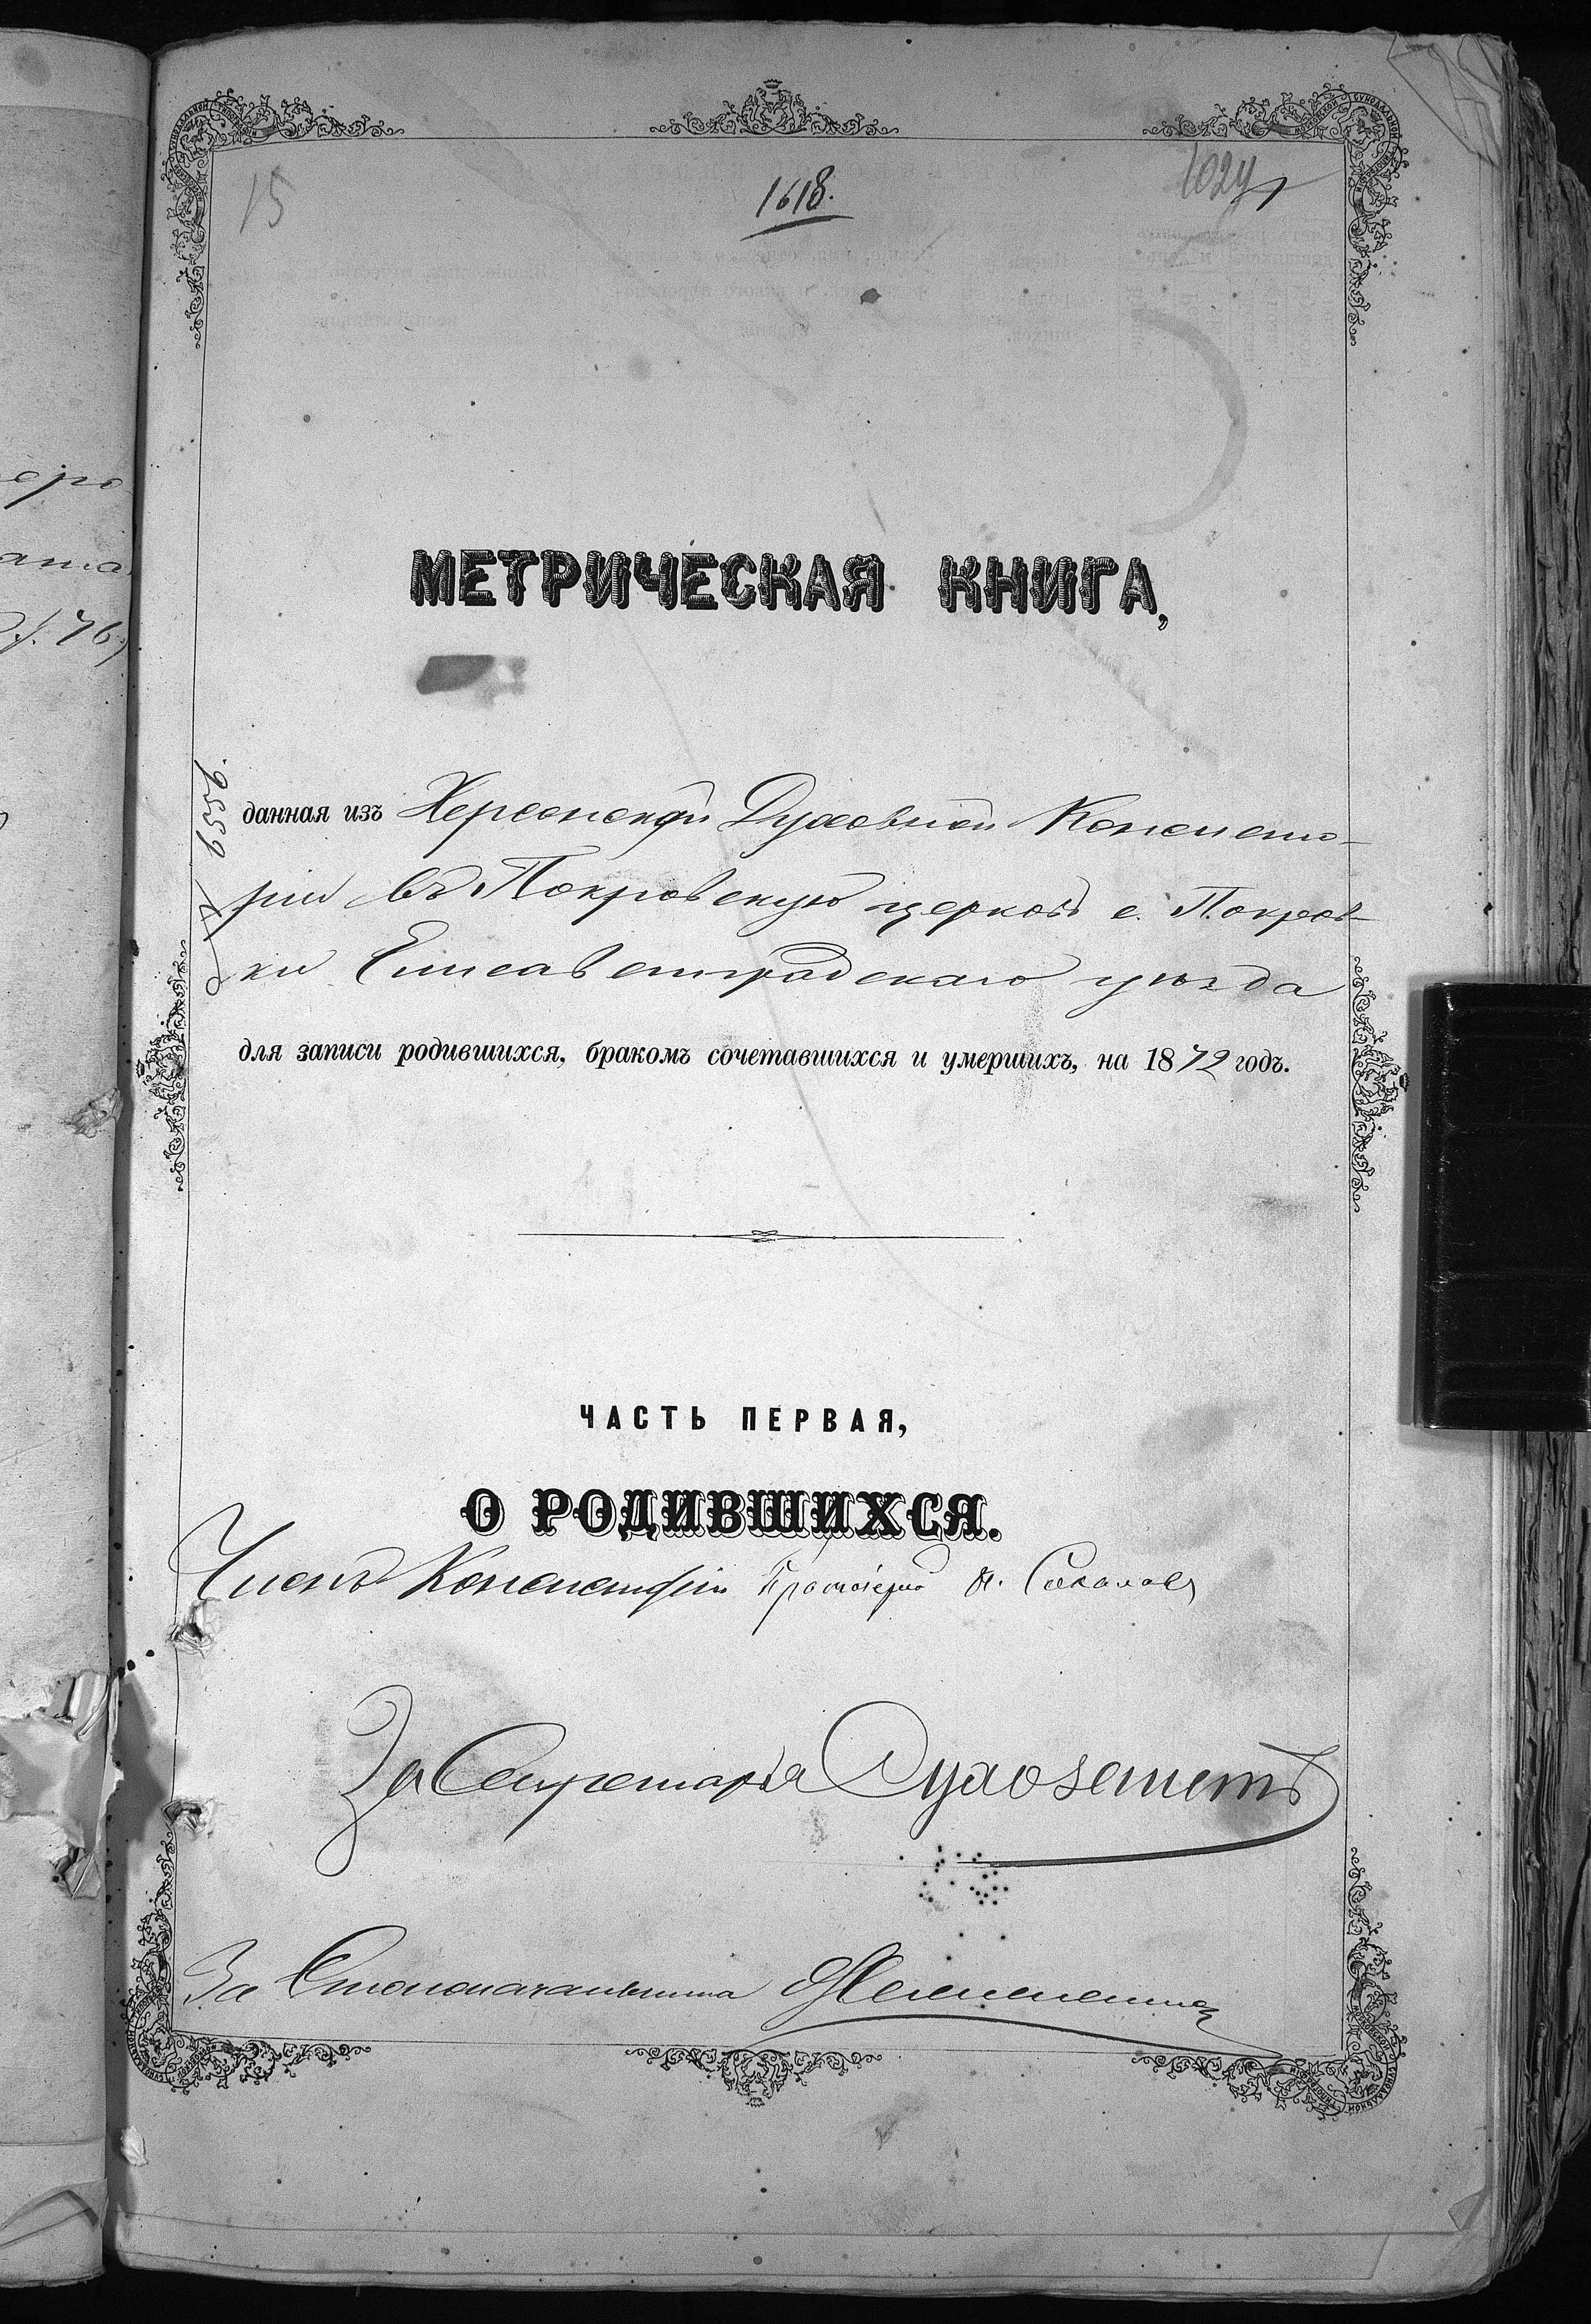 15
1618.
1024
МЕТРИЧЕСКАЯ КНИГА,
данная изъ Херсонской Духовной Консисто-
ріи въ Покровскую церковь с. Покров-
ки Елисаветградскаго уѣзда
для записи родившихся, бракомъ сочетавшихся и умершихъ, на 1872 годъ.
ЧАСТЬ ПЕРВАЯ,
О РОДИВШИХСЯ.
Членъ Консисторіи Протоіерей Соколовъ
За Секретаря
За Столоначальника